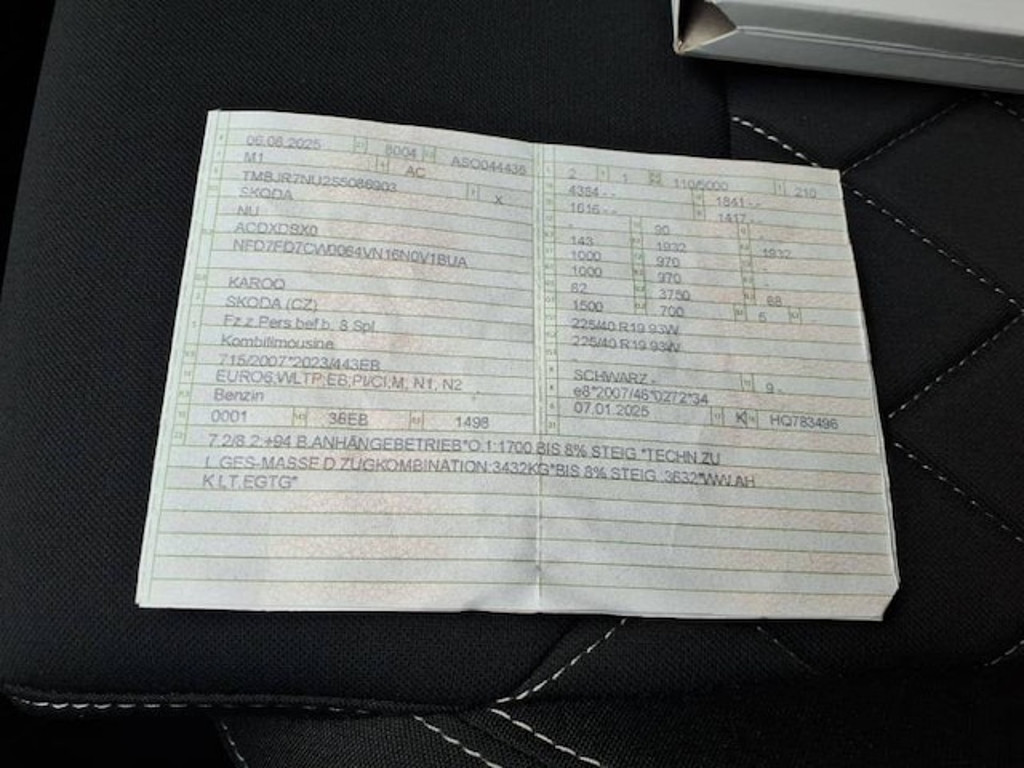 06.06.2025 8004 ASO044436
M1 AC
TMBJR7NU2S5086903 X
SKODA
NU
ACDXDBX0
NFD7FD7CW0064VN16N0V1BUA
KAROQ
SKODA (CZ)
Fz.z.Pers.bef.b. 8 Spl.
Kombilimousine
715/2007*2023/443EB
EURO6;WLTP;EB;PI/CI;M, N1, N2
Benzin
0001 36EB 1498
2 1 110/5000 210
4384 - - 1841 - -
1616 - - 1417 - -
- 90 -
143 1932 1932
1000 970 -
1000 970 -
82 3750 68
1500 700 5
225/40 R19 93W
225/40 R19 93W
SCHWARZ - 9 -
e8*2007/46*0272*34
07.01.2025 K HQ783496
7.2/8.2:+94 B.ANHÄNGEBETRIEB*O.1:1700 BIS 8% STEIG.*TECHN.ZU
L.GES-MASSE D.ZUGKOMBINATION:3432KG*BIS 8% STEIG.:3632*WW.AH
K LT.EGTG*